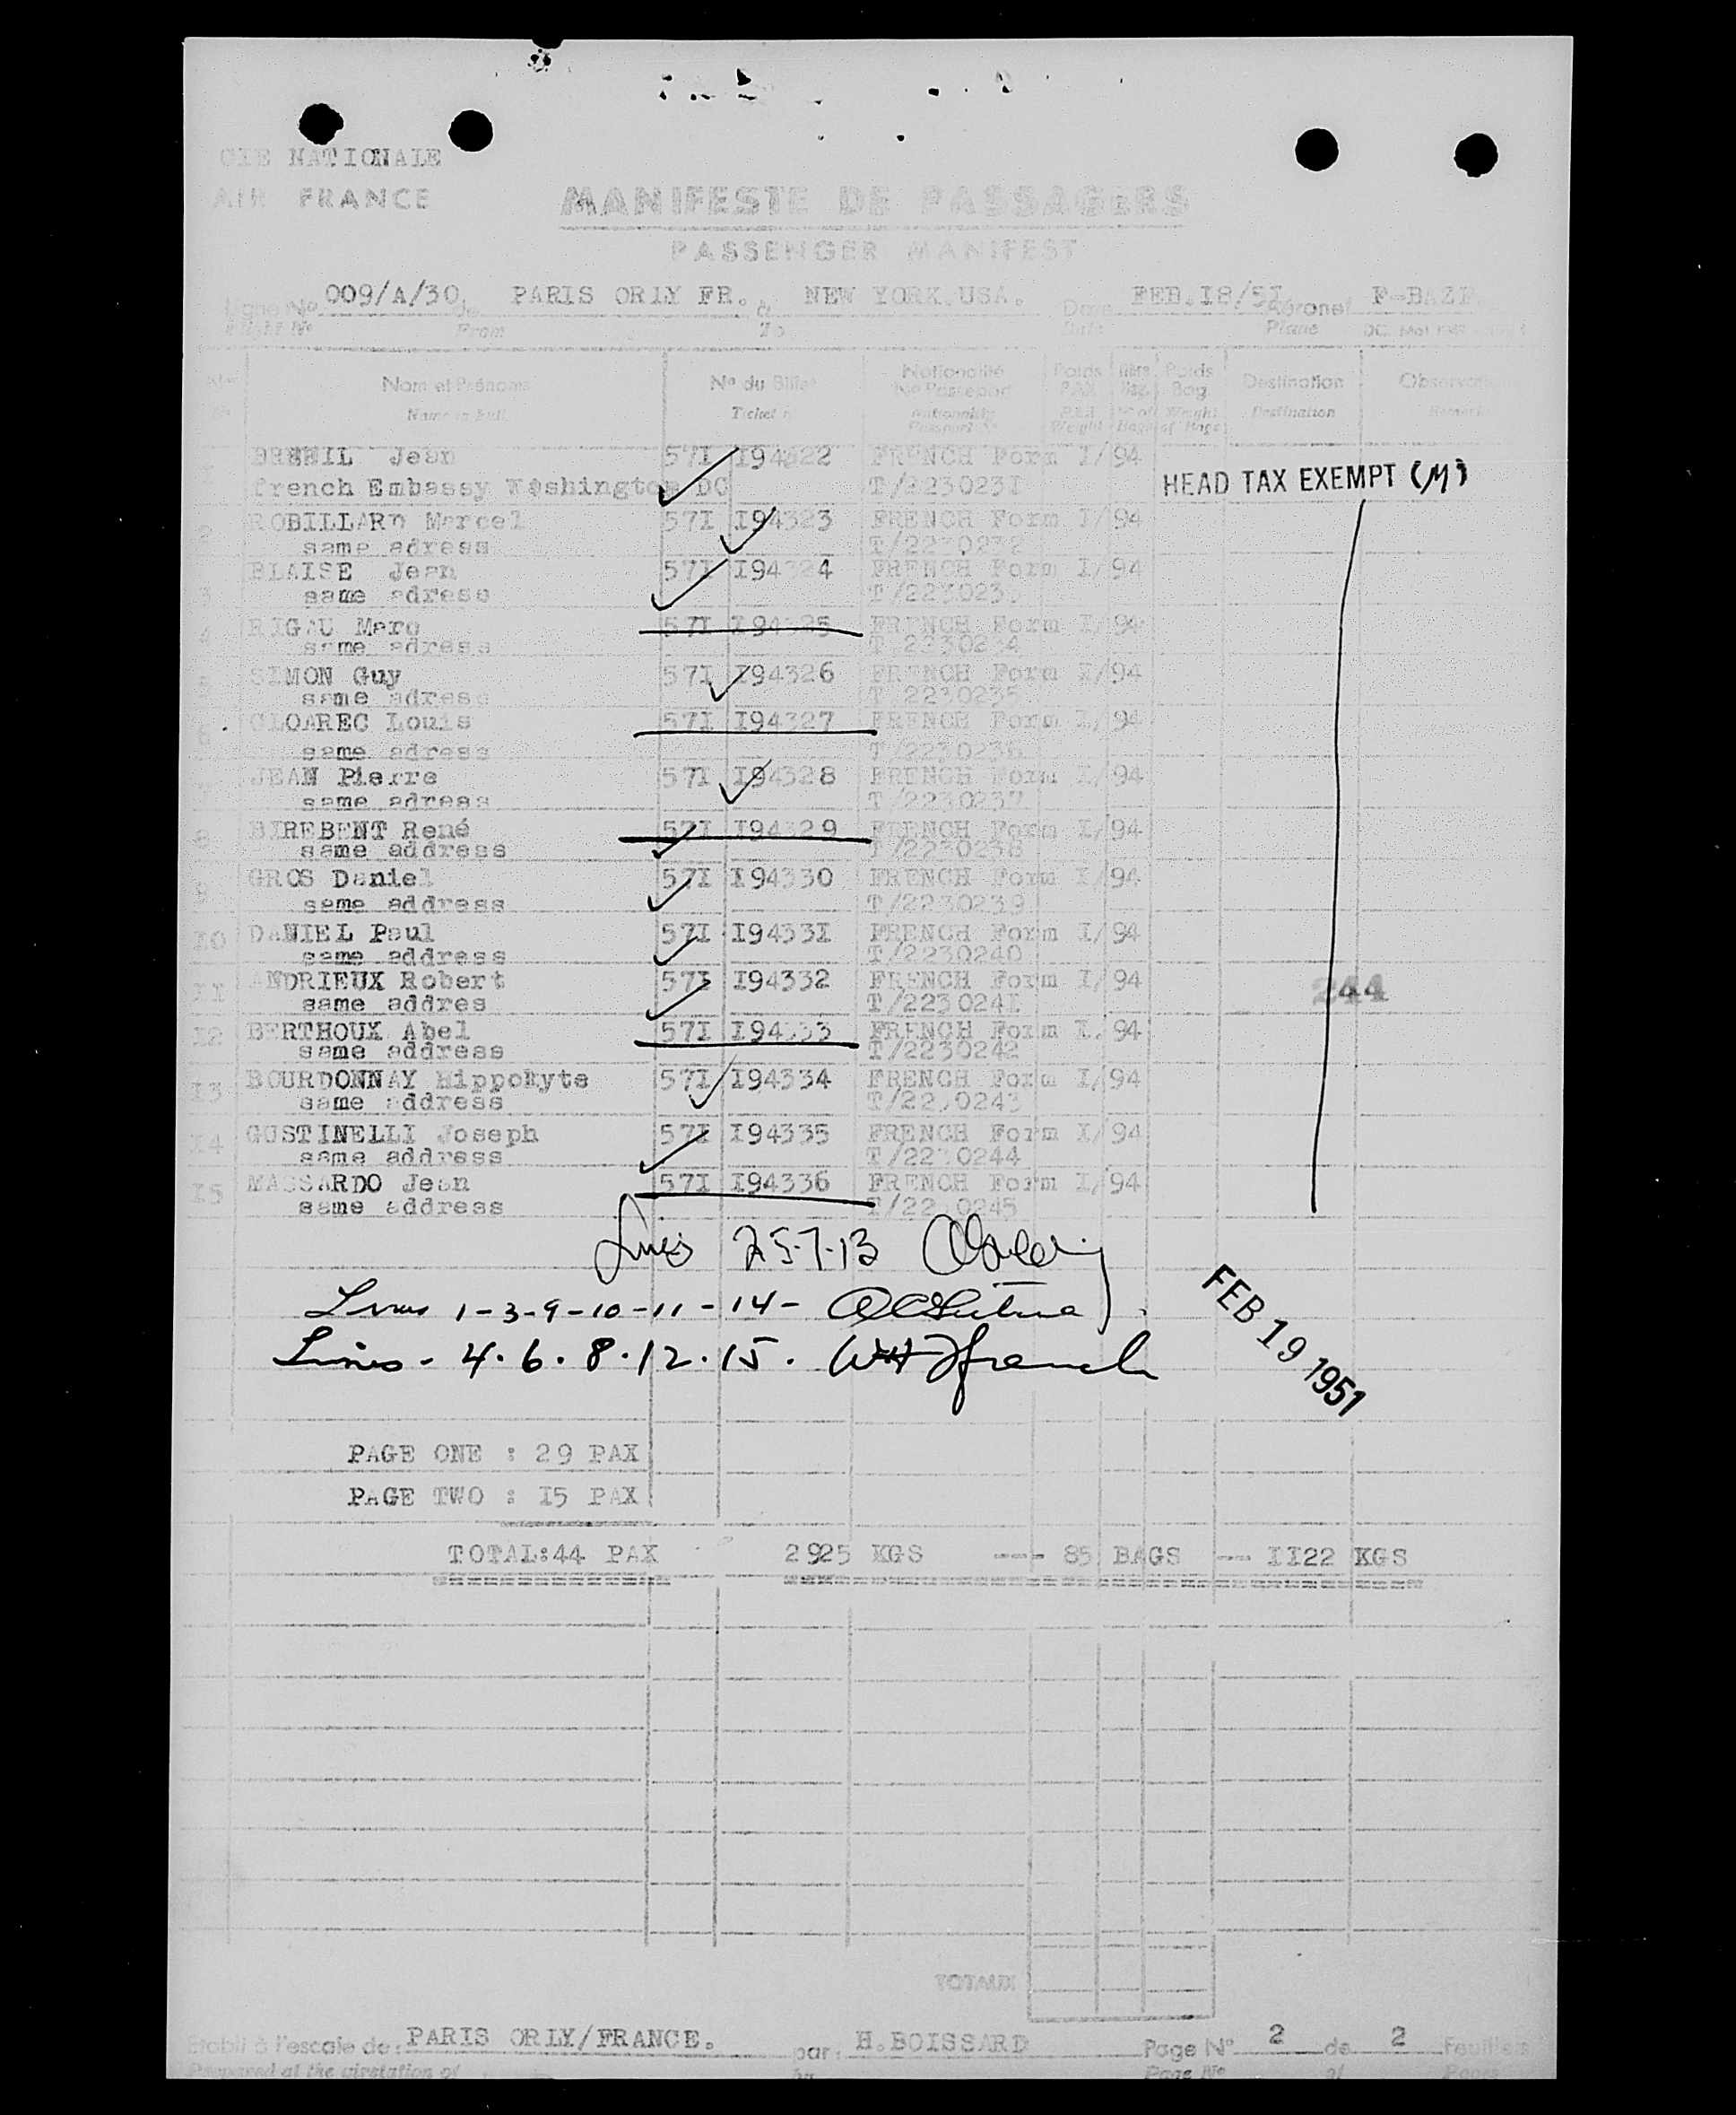 CIE NATIONALE
AIR FRANCE
MANIFESTE DE PASSAGERS
PASSENGER MANIFEST
Ligne No 009/A/30. de PARIS ORLY FR. à NEW YORK.USA. Date FEB.I8/5I Aéronef F-BAZF
Flight No From To Date Plane
Nom et Prénoms No du Billet Nationalité No Passeport Poids PAX Poids Bag. Destination Observat
Name in full Ticket Nationality Passport PAX Weight Weight of Bags Destination Remark
BREHIL Jean 57I I94322 FRENCH Form I/94
french Embassy Washington DC T/223023I HEAD TAX EXEMPT (M)
2 ROBILLARD Marcel 57I I94323 FRENCH Form I/94
same adress T/2230232
3 BLAISE Jean 57I I94324 FRENCH Form I/94
same adress T/223023
4 RIGAU Marc 57I I94325 FRENCH Form I/94
same adress T/2230234
5 SIMON Guy 57I I94326 FRENCH Form I/94
same adress T/2230235
6 CLOAREC Louis 57I I94327 FRENCH Form I/94
same adress T/2230236
7 JEAN Pierre 57I I94328 FRENCH Form I/94
same adress T/2230237
8 BIREBENT René 57I I94329 FRENCH Form I/94
same address T/2230238
9 GROS Daniel 57I I94330 FRENCH Form I/94
same address T/2230239
I0 DANIEL Paul 57I I9433I FRENCH Form I/94
same address T/2230240
II ANDRIEUX Robert 57I I94332 FRENCH Form I/94 244
same addres T/223024I
I2 BERTHOUX Abel 57I I94333 FRENCH Form I/94
same address T/2230242
I3 BOURDONNAY Hippolyte 57I I94334 FRENCH Form I/94
same address T/2230243
I4 GOSTINELLI Joseph 57I I94335 FRENCH Form I/94
same address T/2230244
I5 MASSARDO Jean 57I I94336 FRENCH Form I/94
same address T/2230245
Lines 2 5-7-13
Lines 1-3-9-10-11-14-
Lines - 4.6.8.12.15. WH French
FEB 19 1951
PAGE ONE : 29 PAX
PAGE TWO : I5 PAX
TOTAL:44 PAX 2925 KGS --- 85 BAGS --- II22 KGS
TOTAUX
Etabli à l'escale de: PARIS ORLY/FRANCE. par: H.BOISSARD Page No 2 de 2 Feuillets
Prepared at the airstation of by Page No of Pages